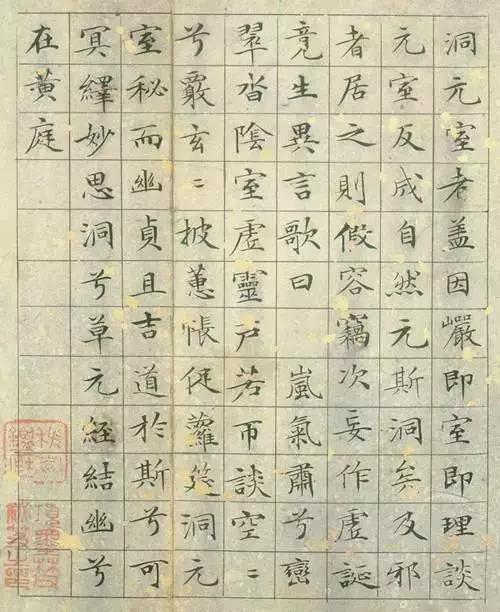 洞元室者盖因巖即室即理談
元室反成自然元斯洞矣及邪
者居之則假容竊次妄作虛誕
竞生異言歌曰 嵐氣肅兮巒
翠沓陰室虛靈戶若帀談空〻
兮覈玄〻披蕙帳促蘿筵洞元
室秘而幽貞且吉道於斯兮可
冥繹妙思洞兮草元経結幽兮
在黄庭